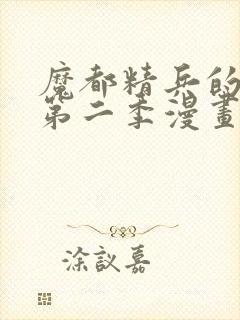 魔都精兵的
第二季漫畫
涂議嘉